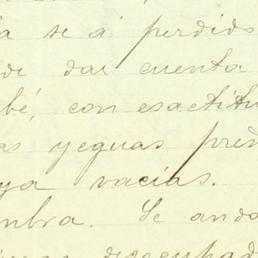 a se á perdido
de dar cuenta
bé, con esactitu
as yeguas pre
ya vacías.
mbra. Se anda
desocupad